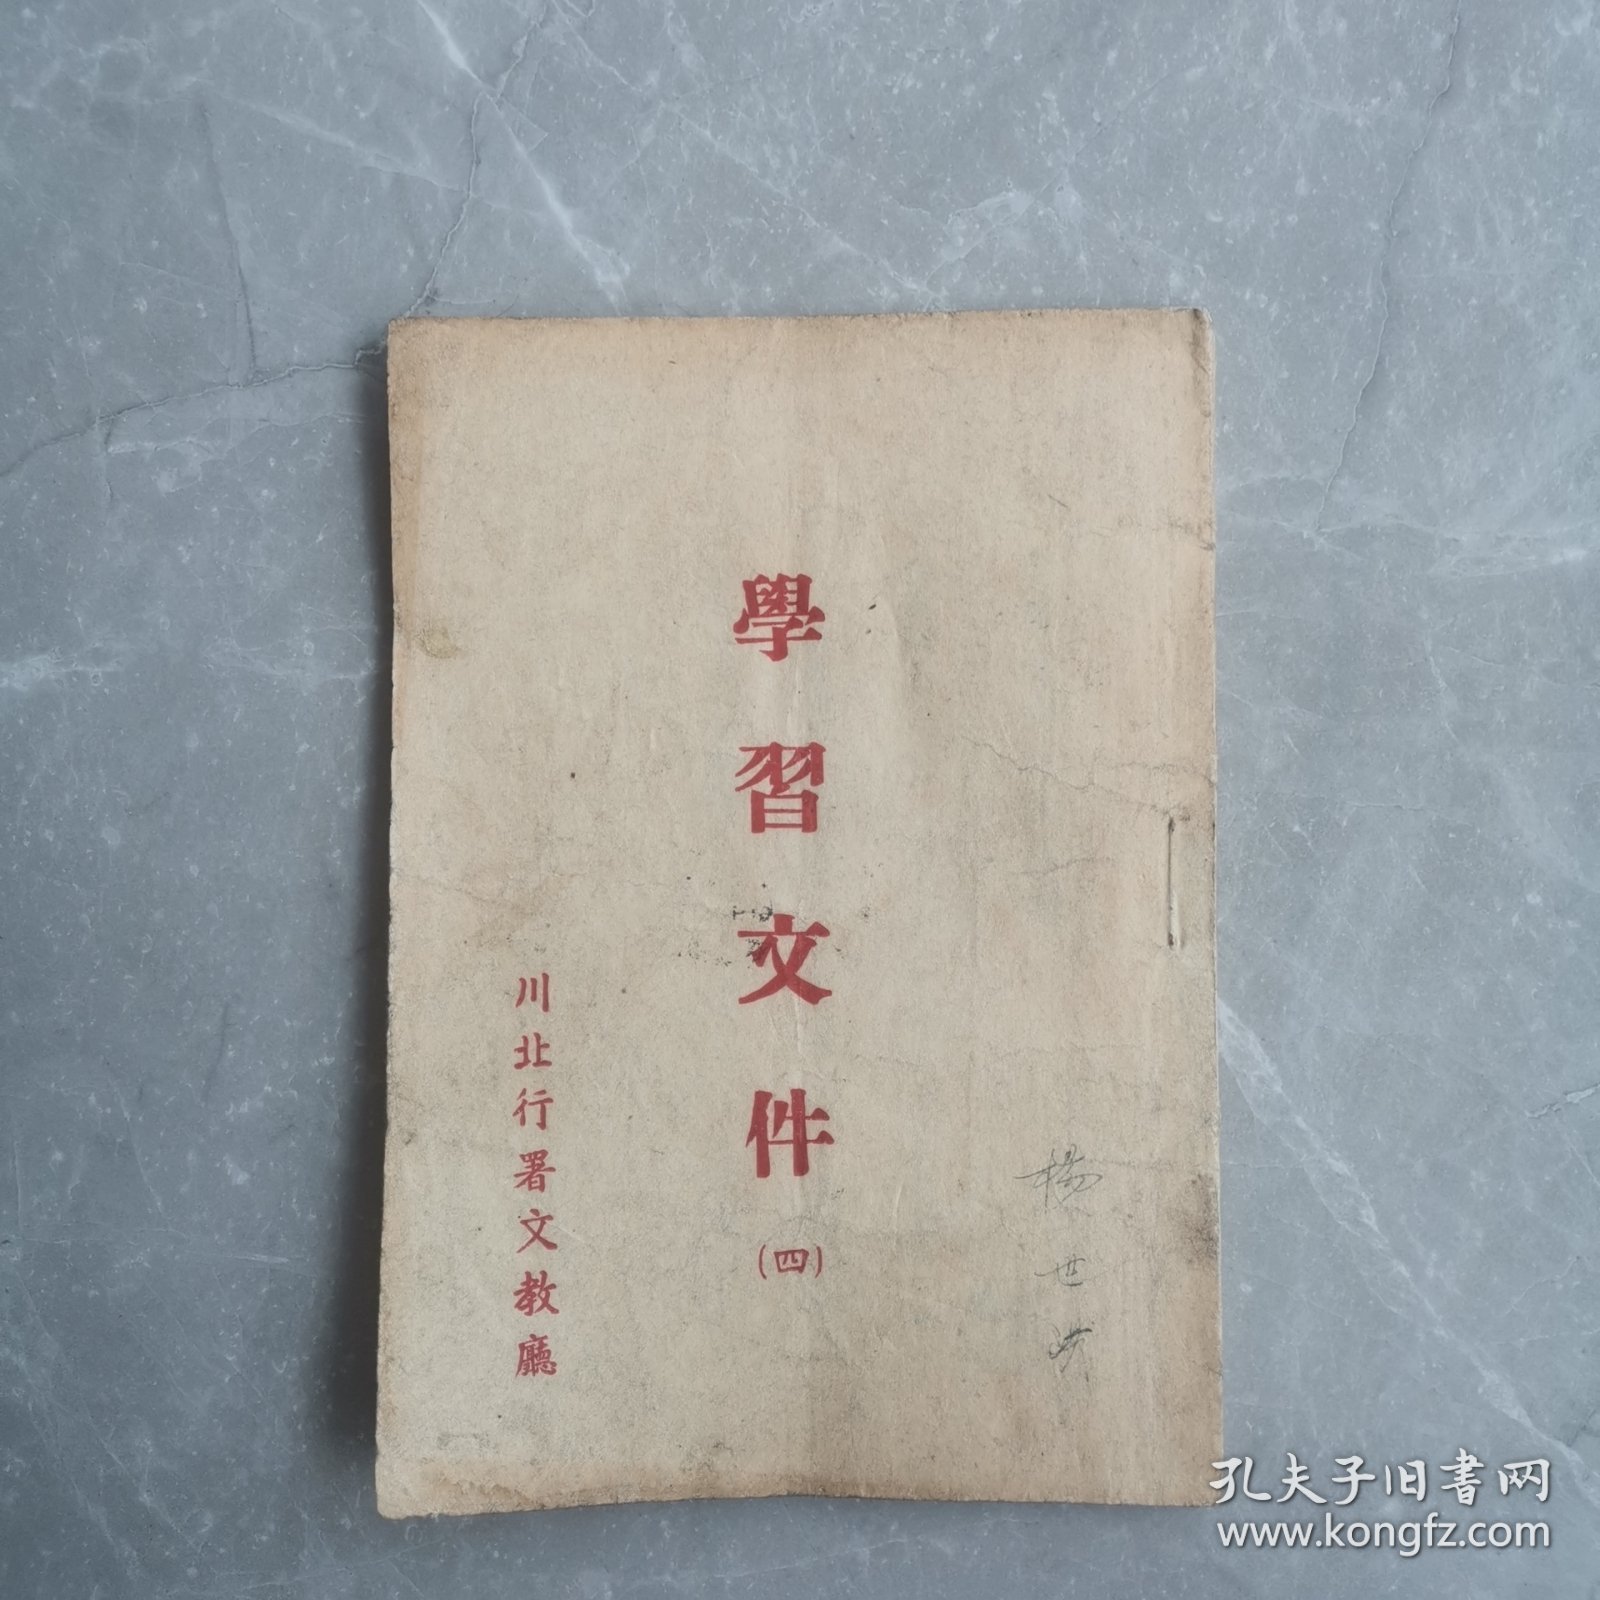 學習文件
(四)
川北行署文教廳
楊世
孔夫子旧書网
www.kongfz.com